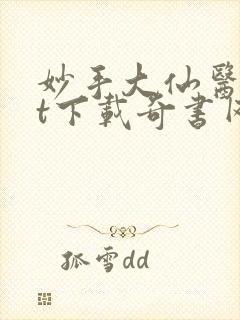 妙手大仙醫
t下載奇書
孤雪dd